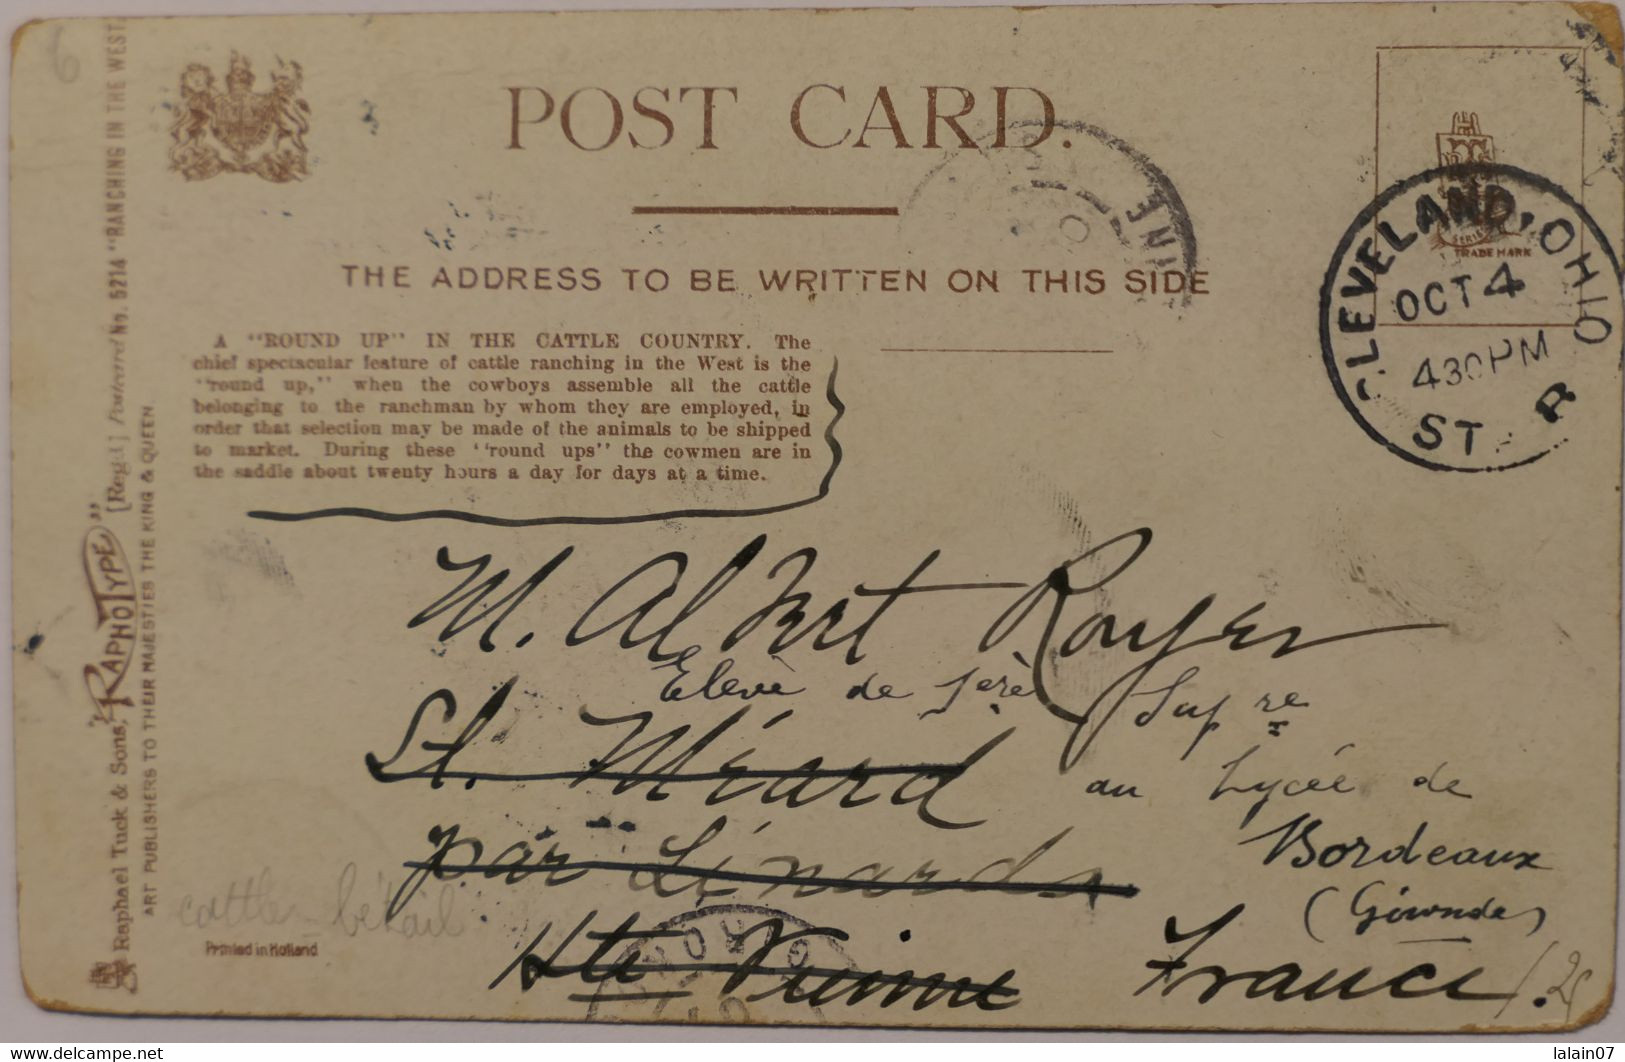 6
POST CARD.
THE ADDRESS TO BE WRITTEN ON THIS SIDE
A "ROUND UP" IN THE CATTLE COUNTRY. The
chief spectacular feature of cattle ranching in the West is the
"round up," when the cowboys assemble all the cattle
belonging to the ranchman by whom they are employed, in
order that selection may be made of the animals to be shipped
to market. During these "round ups" the cowmen are in
the saddle about twenty hours a day for days at a time.
TRADE MARK
SERIES
CLEVELAND, OHIO
OCT 4
430PM
ST R
M. Albert Royer
Elève de 1ere Supre
St. Méard
au Lycée de
par Linards
Bordeaux
(Gironde)
Hte Vienne
France
cattle - bétail
Printed in Holland
Raphael Tuck & Sons' "RAPHOTYPE" [Regd.] Postcard No. 5214 "RANCHING IN THE WEST
ART PUBLISHERS TO THEIR MAJESTIES THE KING & QUEEN.
https://www.delcampe.net
lalain07